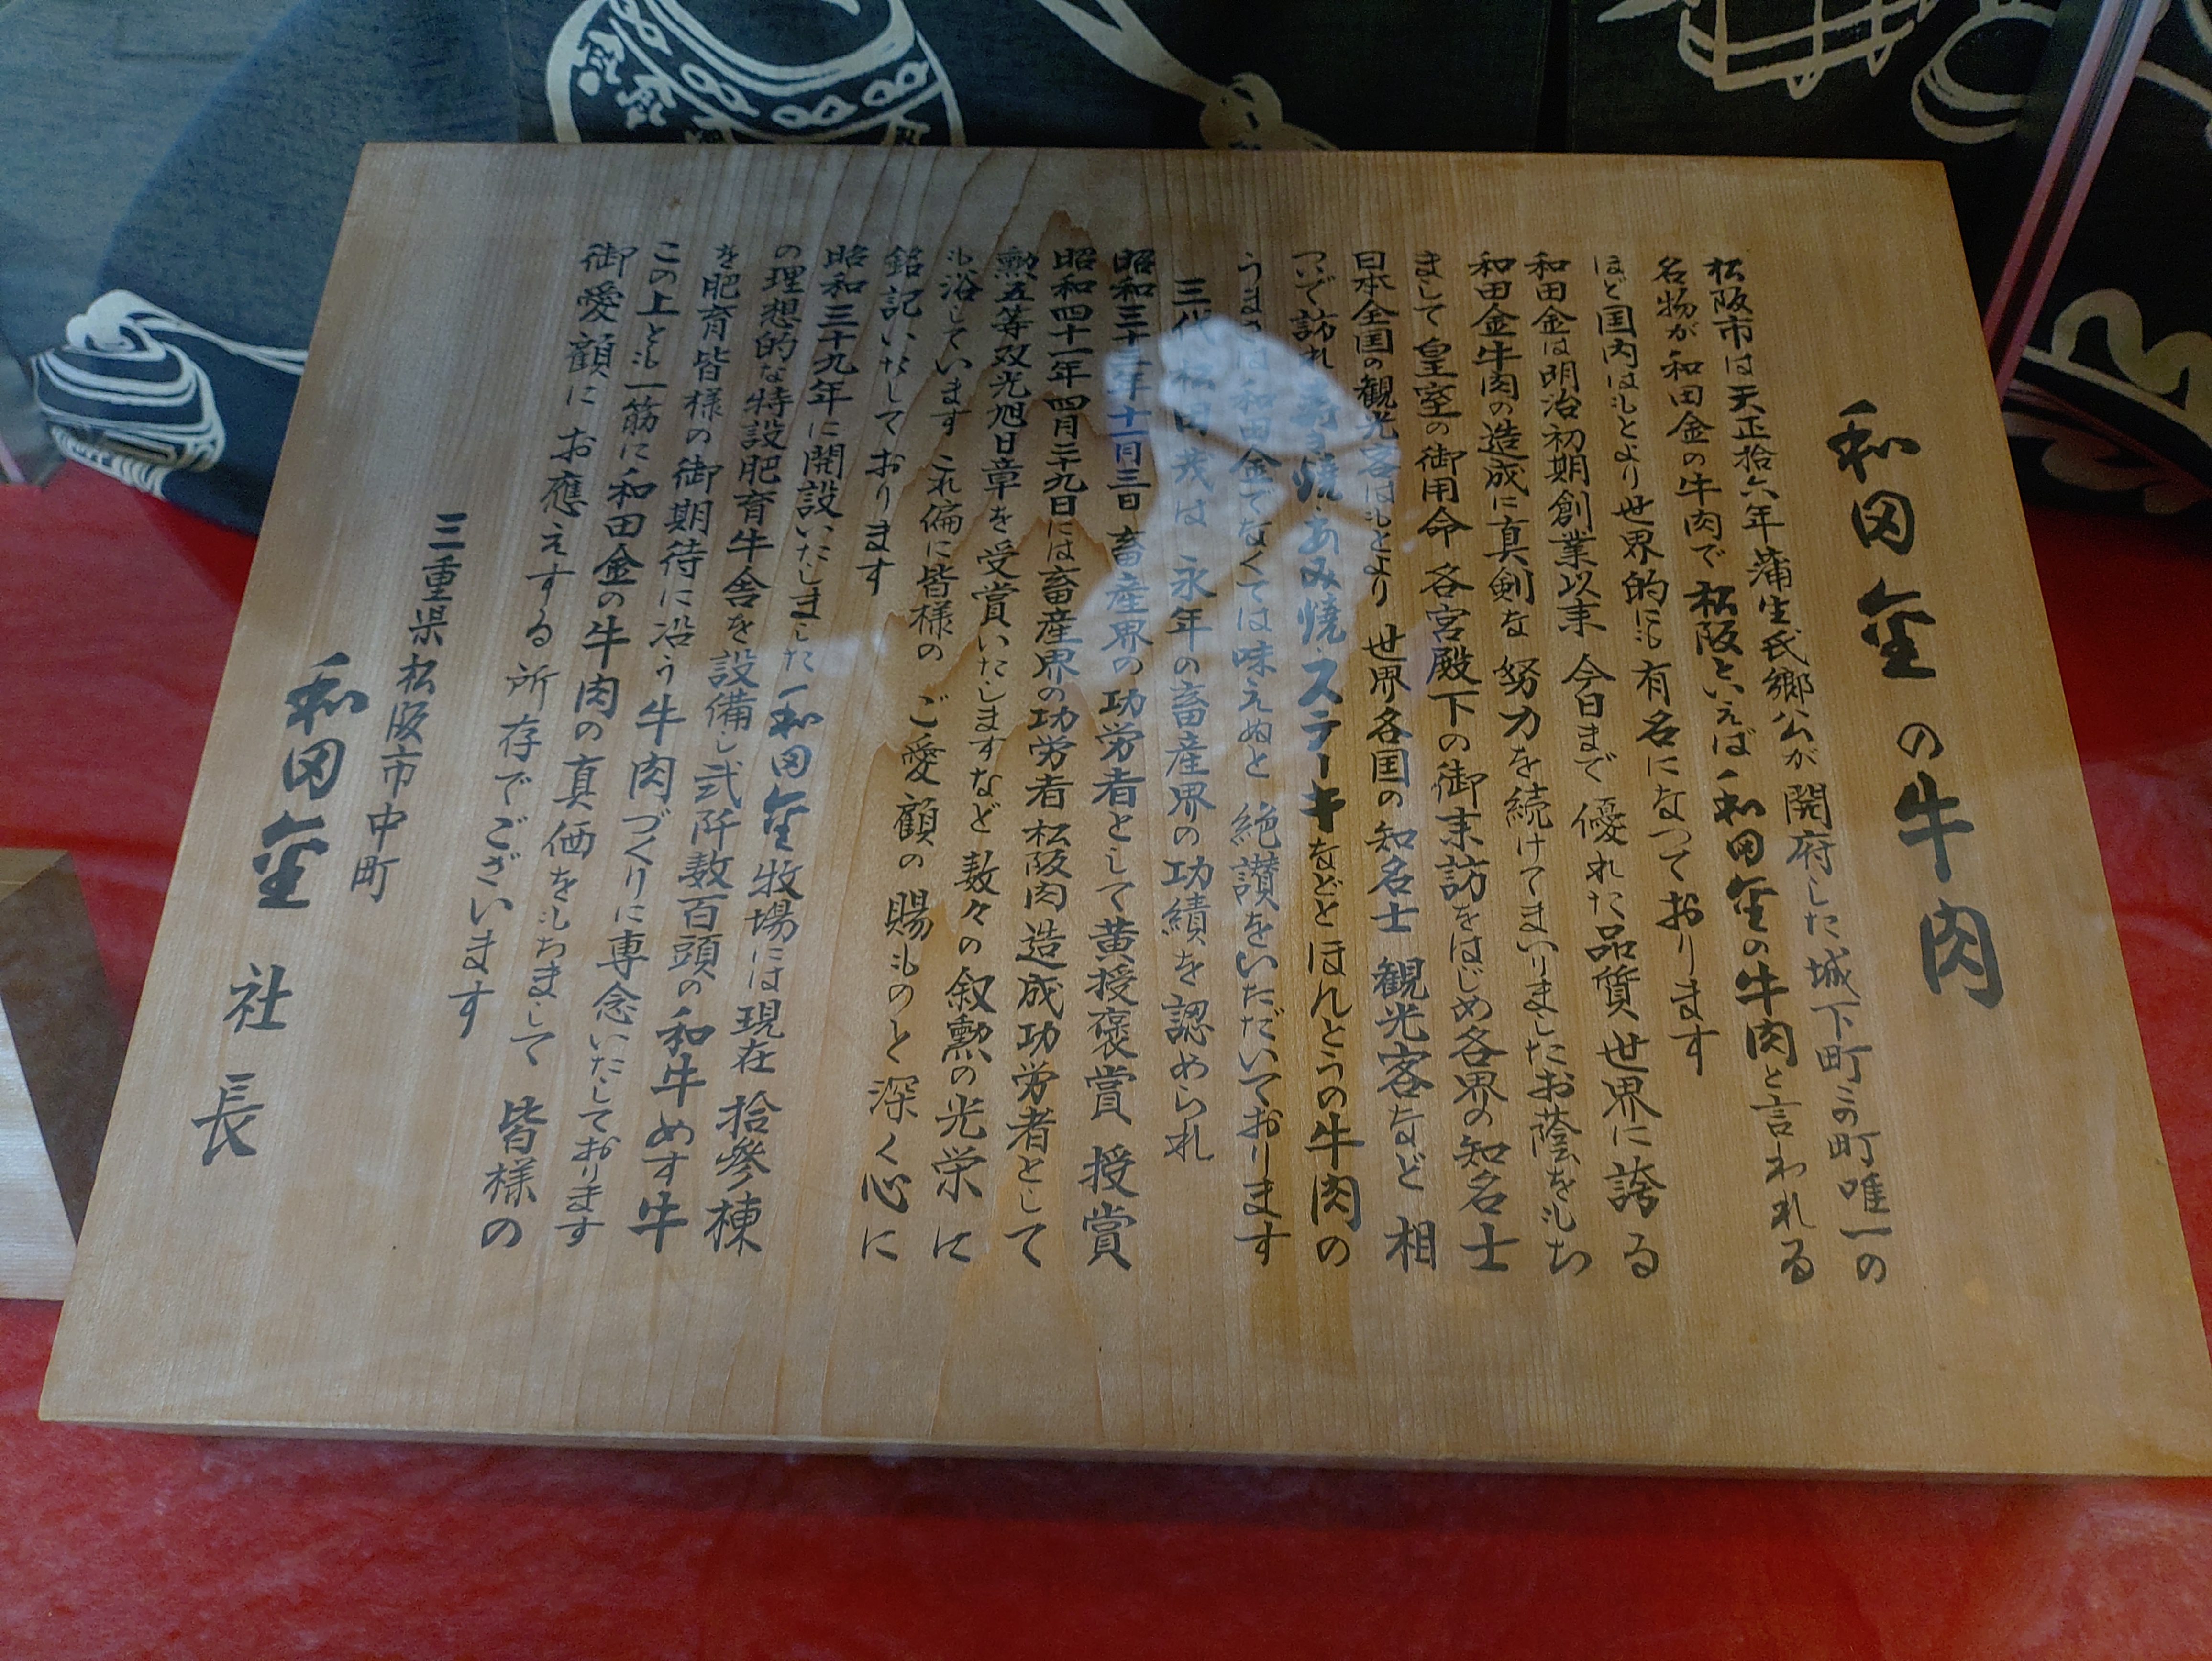 和田金の牛肉
松阪市は天正拾六年蒲生氏郷公が開府した城下町この町唯一の
名物が和田金の牛肉で松阪といえば和田金の牛肉と言われる
ほど国内はもとより世界的にも有名になつております
和田金は明治初期創業以来今日まで優れた品質世界に誇る
和田金牛肉の造成に真剣な努力を続けてまいりましたお蔭をもち
まして皇室の御用命各宮殿下の御来訪をはじめ各界の知名士
日本全国の観光客はもとより世界各国の知名士観光客など相
ついで訪れ寿き焼・あみ焼・ステーキなどとほんとうの牛肉の
うまさは和田金でなくては味えぬと絶讃をいただいております
三代松田茂は永年の畜産界の功績を認められ
昭和三十三年十一月三日畜産界の功労者として黄授褒賞授賞
昭和四十一年四月二十九日には畜産界の功労者松阪肉造成功労者として
勲五等双光旭日章を受賞いたしますなど数々の叙勲の光栄に
も浴しています これ偏に皆様のご愛顧の賜ものと深く心に
銘記いたしております
昭和三十九年に開設いたしました和田金牧場には現在拾参棟
の理想的な特設肥育牛舎を設備し弐阡数百頭の和牛めす牛
を肥育皆様の御期待に沿う牛肉づくりに専念いたしております
この上とも一筋に和田金の牛肉の真価をもちまして皆様の
御愛顧にお應えする所存でございます
三重県松阪市中町
和田金 社長